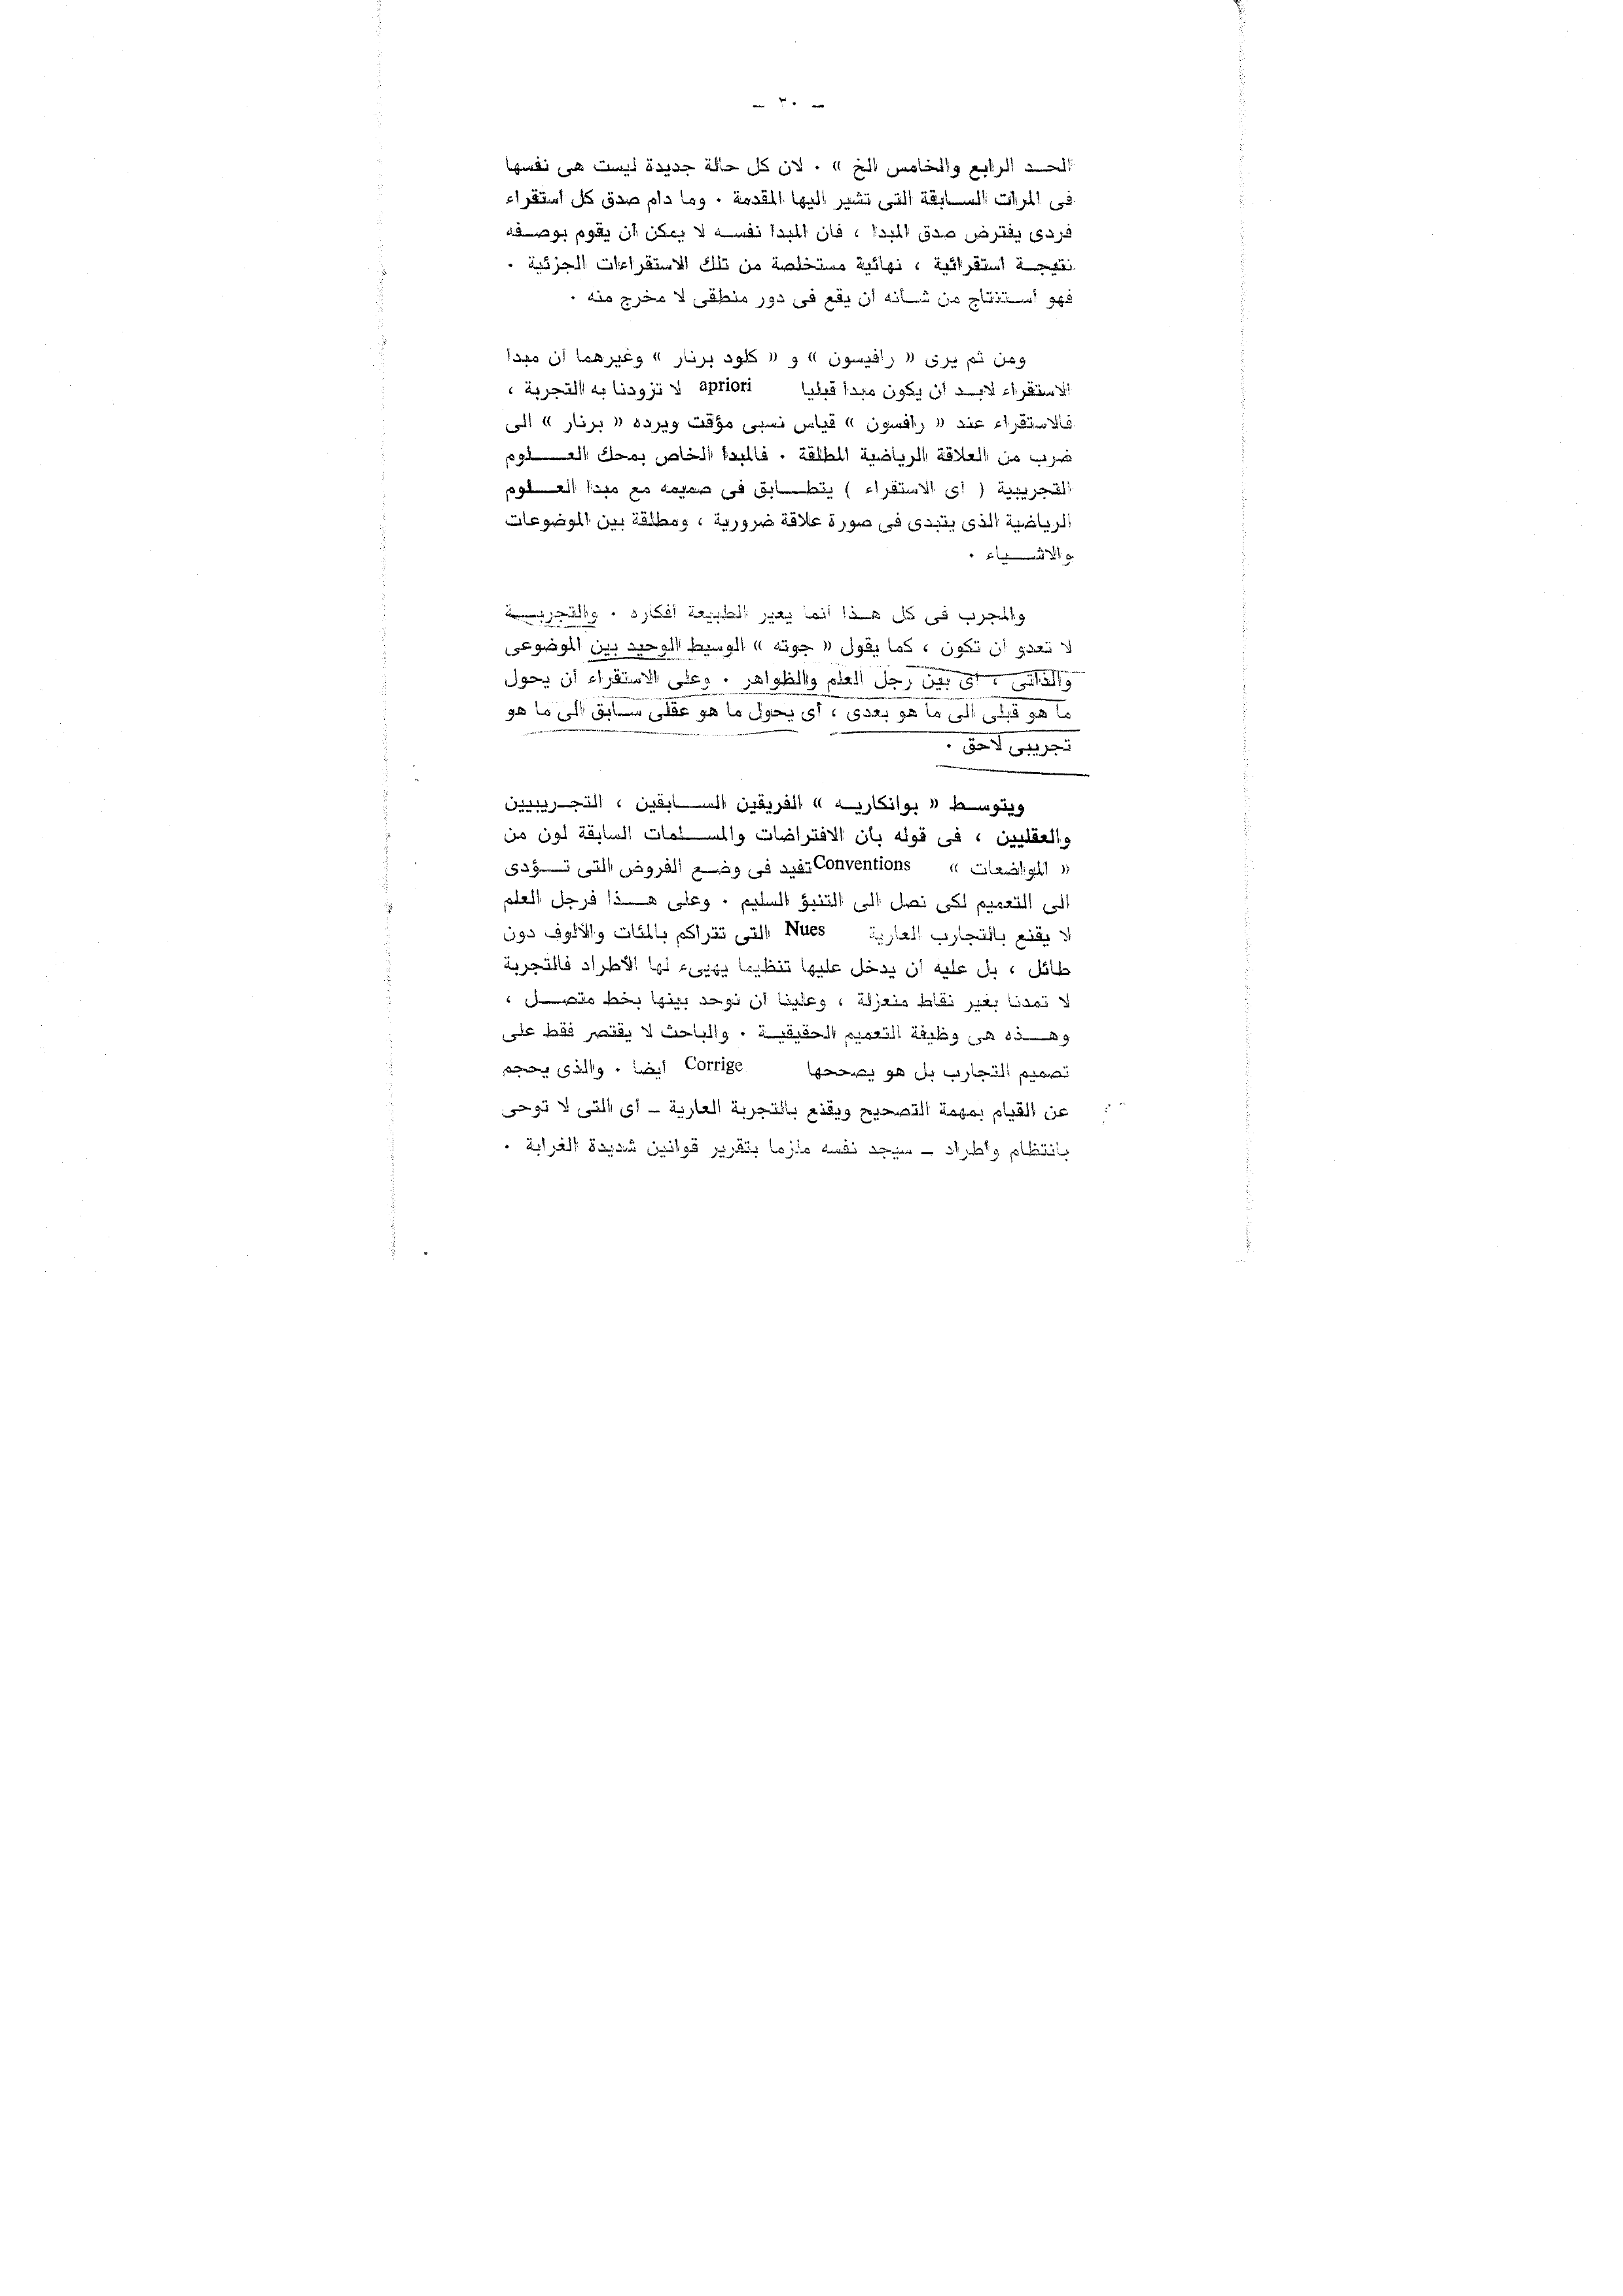 — ٣٠ —
الحد الرابع والخامس الخ » ٠ لان كل حالة جديدة ليست هى نفسها
فى المرات السابقة التى تشير اليها المقدمة ٠ وما دام صدق كل استقراء
فردى يفترض صدق المبدا ، فان المبدا نفسه لا يمكن أن يقوم بوصفه
نتيجة استقرائية ، نهائية مستخلصة من تلك الاستقراءات الجزئية ٠
فهو استنتاج من شأنه ان يقع فى دور منطقى لا مخرج منه ٠
ومن ثم يرى « رافيسون » و « كلود برنار » وغيرهما ان مبدا
الاستقراء لابد ان يكون مبدا قبليا apriori لا تزودنا به التجربة ،
فالاستقراء عند « رافسون » قياس نسبى مؤقت ويرده « برنار » الى
ضرب من العلاقة الرياضية المطلقة ٠ فالمبدا الخاص بمحك العلوم
التجريبية ( اى الاستقراء ) يتطابق فى صميمه مع مبدا العلوم
الرياضية الذى يتبدى فى صورة علاقة ضرورية ، ومطلقة بين الموضوعات
والاشياء ٠
والمجرب فى كل هذا انما يعير الطبيعة أفكاره ٠ والتجربة
لا تعدو ان تكون ، كما يقول « جوته » الوسيط الوحيد بين الموضوعى
والذاتى ، اى بين رجل العلم والظواهر ٠ وعلى الاستقراء أن يحول
ما هو قبلى الى ما هو بعدى ، أى يحول ما هو عقلى سابق الى ما هو
تجريبى لاحق ٠
ويتوسط « بوانكاريه » الفريقين السابقين ، التجريبيين
والعقليين ، فى قوله بأن الافتراضات والمسلمات السابقة لون من
« المواضعات » Conventions تفيد فى وضع الفروض التى تؤدى
الى التعميم لكى نصل الى التنبؤ السليم ٠ وعلى هذا فرجل العلم
لا يقنع بالتجارب العارية Nues التى تتراكم بالمئات والألوف دون
طائل ، بل عليه ان يدخل عليها تنظيما يهيىء لها الأطراد فالتجربة
لا تمدنا بغير نقاط منعزلة ، وعلينا ان نوحد بينها بخط متصل ،
وهذه هى وظيفة التعميم الحقيقية ٠ والباحث لا يقتصر فقط على
تصميم التجارب بل هو يصححها Corrige ايضا ٠ والذى يحجم
عن القيام بمهمة التصحيح ويقنع بالتجربة العارية — أى التى لا توحى
بانتظام واطراد — سيجد نفسه ملزما بتقرير قوانين شديدة الغرابة ٠